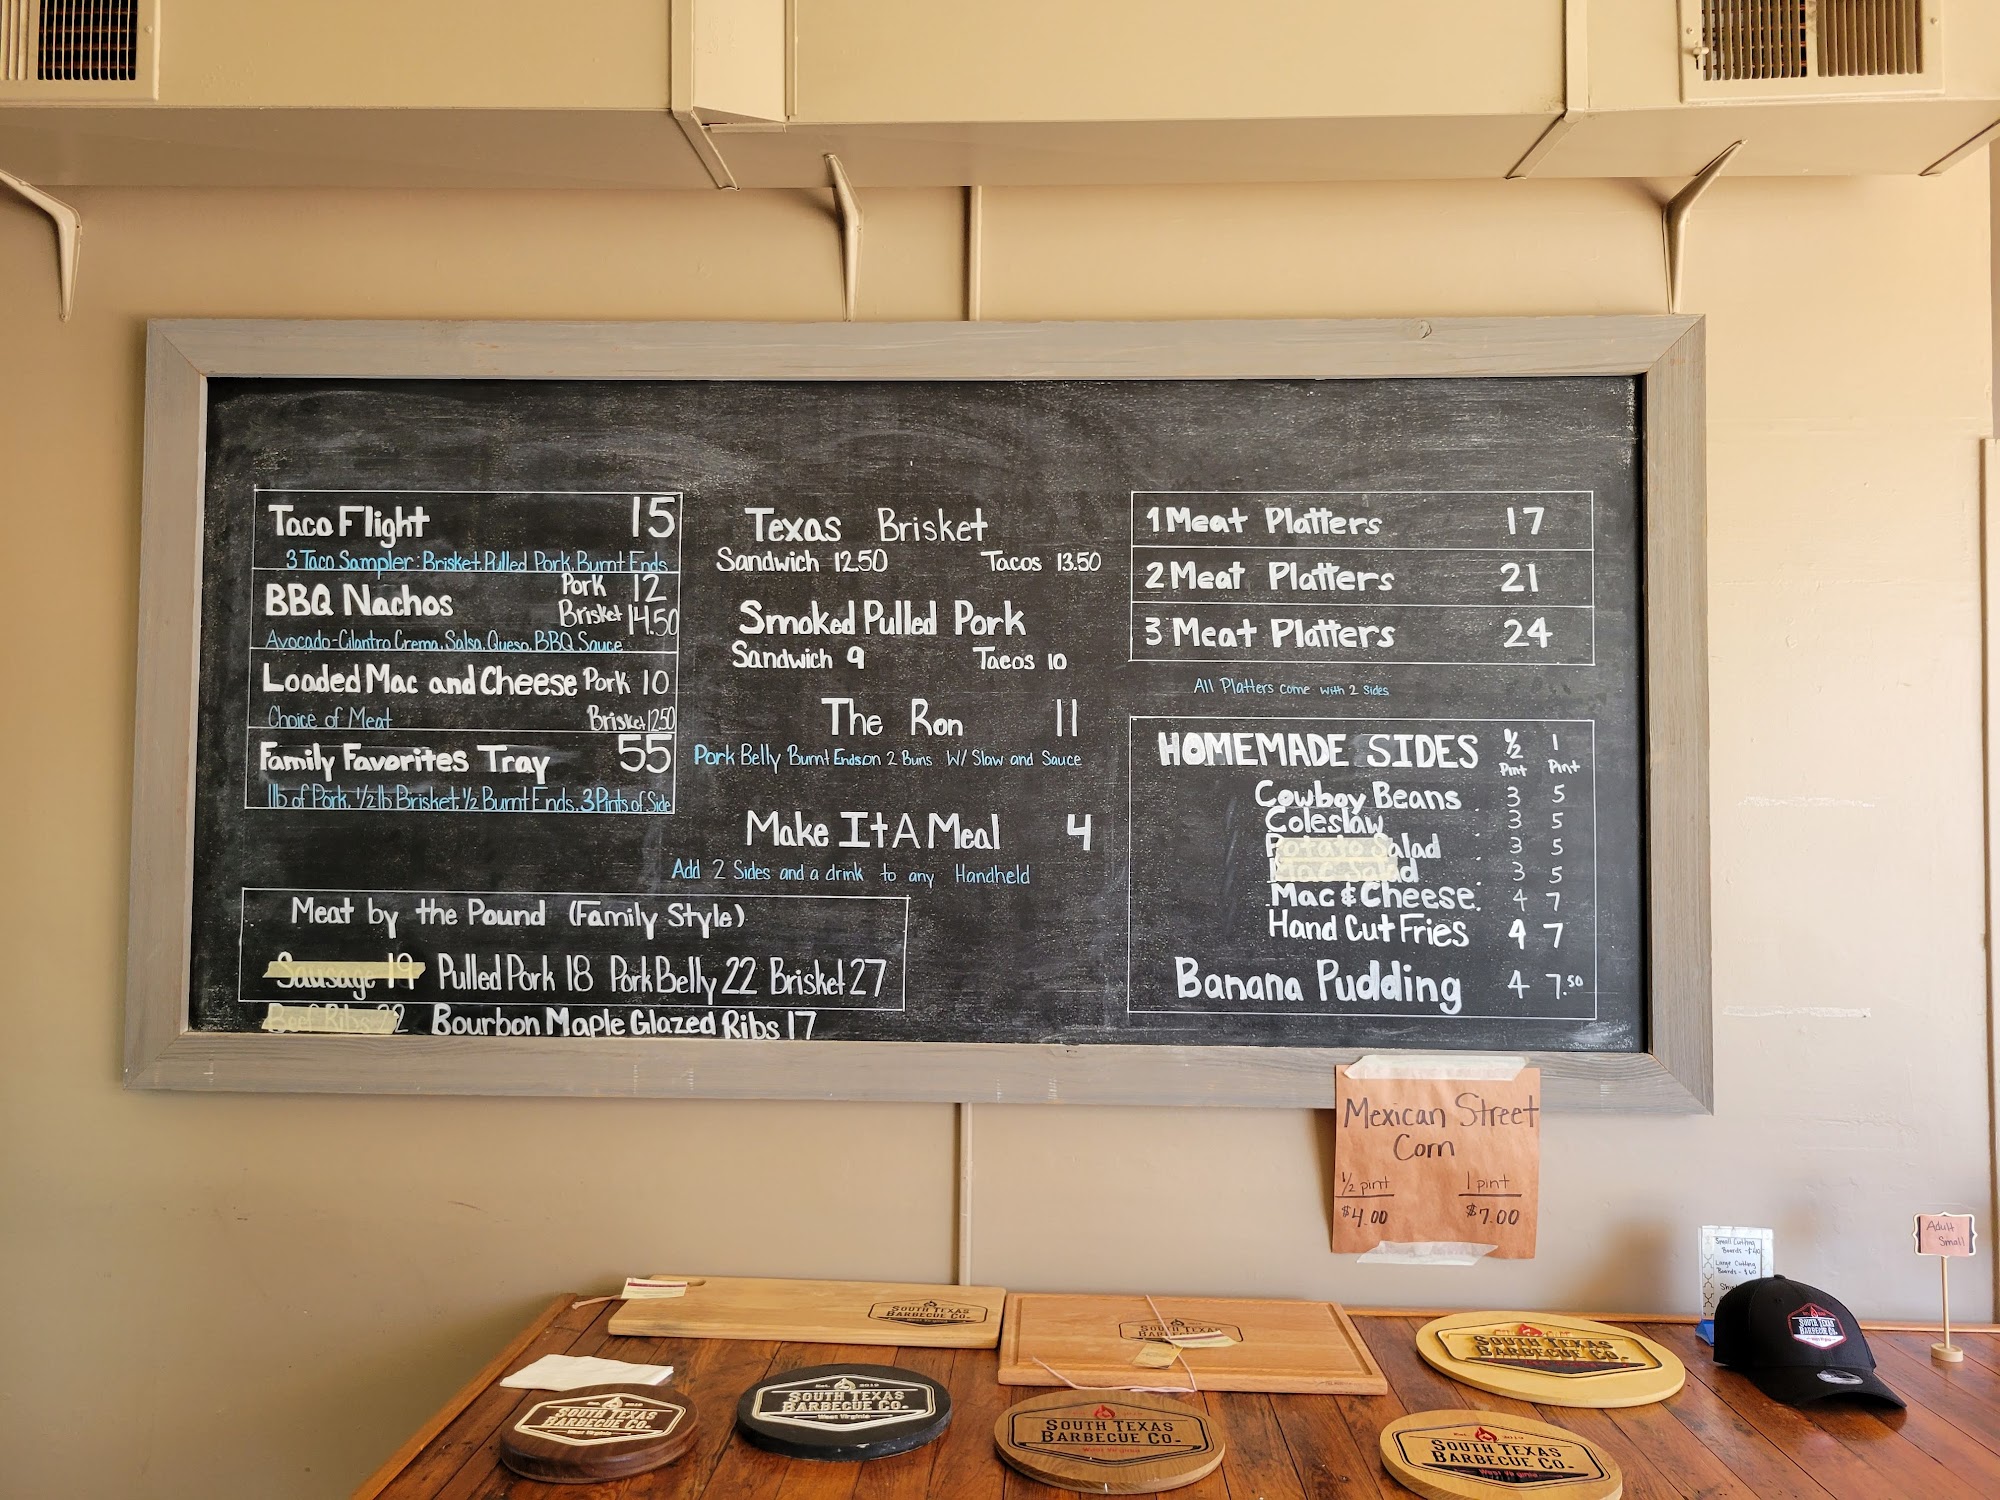 Taco Flight 15
3 Taco Sampler: Brisket, Pulled Pork, Burnt Ends
BBQ Nachos Pork 12
Brisket 14.50
Avocado-Cilantro Crema, Salsa, Queso, BBQ Sauce
Loaded Mac and Cheese Pork 10
Choice of Meat Brisket 12.50
Family Favorites Tray 55
1lb of Pork, 1/2 lb Brisket, 1/2 Burnt Ends, 3 Pints of Side
Texas Brisket
Sandwich 12.50 Tacos 13.50
Smoked Pulled Pork
Sandwich 9 Tacos 10
The Ron 11
Pork Belly Burnt Ends on 2 Buns W/ Slaw and Sauce
Make It A Meal 4
Add 2 Sides and a drink to any Handheld
Meat by the Pound (Family Style)
Sausage 19 Pulled Pork 18 Pork Belly 22 Brisket 27
Beef Ribs 22 Bourbon Maple Glazed Ribs 17
1 Meat Platters 17
2 Meat Platters 21
3 Meat Platters 24
All Platters come with 2 Sides
HOMEMADE SIDES 1/2 Pint 1 Pint
Cowboy Beans 3 5
Coleslaw 3 5
Potato Salad 3 5
Mac Salad 3 5
Mac & Cheese 4 7
Hand Cut Fries 4 7
Banana Pudding 4 7.50
Mexican Street
Corn
1/2 pint 1 pint
$4.00 $7.00
Small Cutting
Boards - $40
Large Cutting
Boards - $60
Adult
Small
SOUTH TEXAS
BARBECUE CO.
SOUTH TEXAS
BARBECUE CO.
SOUTH TEXAS
BARBECUE CO.
West Virginia
SOUTH TEXAS
BARBECUE CO.
Est. 2019
SOUTH TEXAS
BARBECUE CO.
West Virginia
Est. 2019
SOUTH TEXAS
BARBECUE CO.
West Virginia
SOUTH TEXAS
BARBECUE CO.
West Virginia
Est. 2019
SOUTH TEXAS
BARBECUE CO.
West Virginia